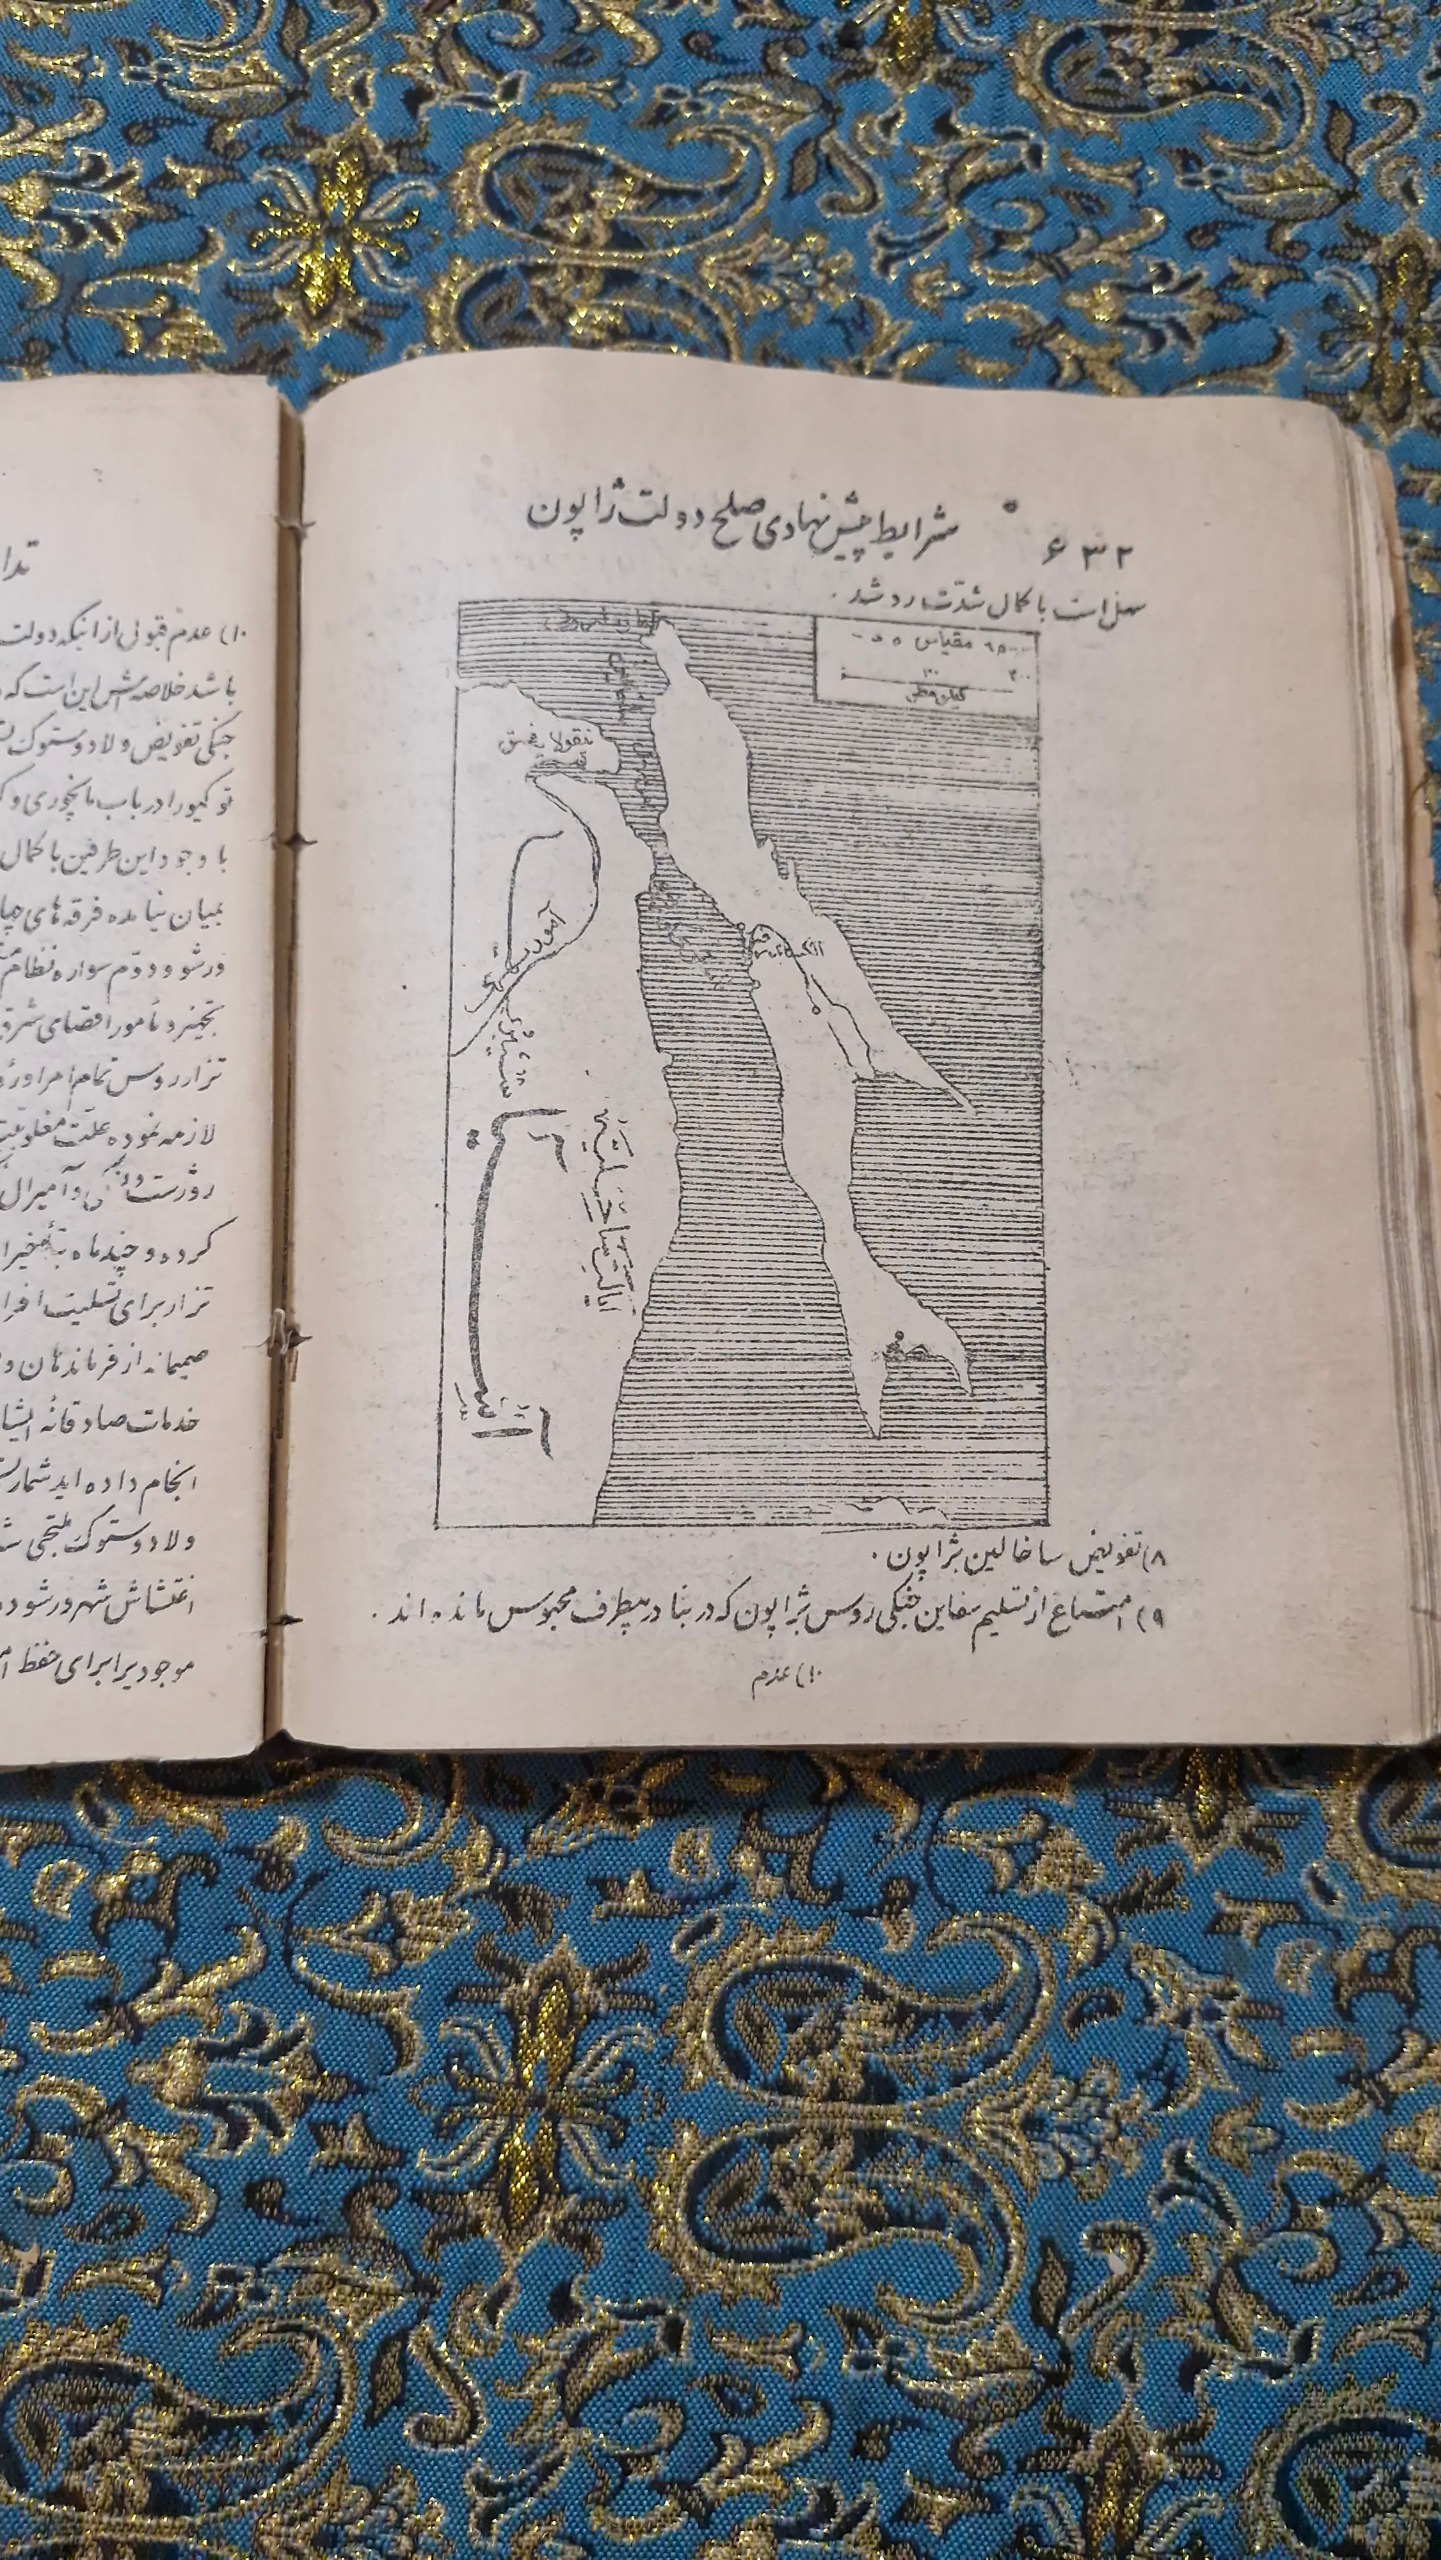 ۶۳۲
شرایط پیش نهادی صلح دولت ژاپون
است با کمال شدت رد شد.
مقیاس
نیقولایفسق
آمور
آسیا
ایالت ساحلیه
۸) تفویض ساخالین بژاپون.
۹) امتناع از تسلیم سفاین جنگی روس بژاپون که در بنادر بیطرف محبوس مانده اند.
۱۰) عدم
تدا
۱۰) عدم قبولی از اینکه دولت
باشد خلاصه‌اش این است که
جنگی تفویض ولادوستوک
توکیو را در باب مانچوری و
با وجود این طرفین با کمال
بمیان نیامده فرقه های چا
ورشو و دوم سواره نظام
تجهیز و مأمور اقصای شرق
تزار روس تمام امرا و
لازمه نموده علت مغلوبیت
روژست و آمیرال
کرده و چند ماه بتأخیر
تزار برای تسلیت افرا
صمیمانه از فرماندهان و
خدمات صادقانهٔ ایشا
انجام داده اید شما
ولادوستوک ملتجی
اغتشاش شهر ورشو
موجود برا برای حفظ